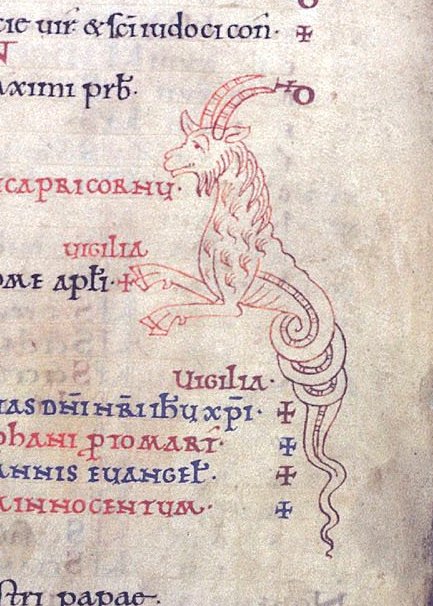 cie uir̄. & sc̄i iudoci con̄f. ✠
N
aximi prb̄.
O
ICAPRICORNŪ.
UIGILIA
OME apl̄i. ✠
UIGILIA.
IAS DN̄I NR̄I IHŪ XP̄I. ✠
phANI ꝑTOMART̄. ✠
ANNIS EUANGEL̄. ✠
INNOCENTUM. ✠
stri papae.